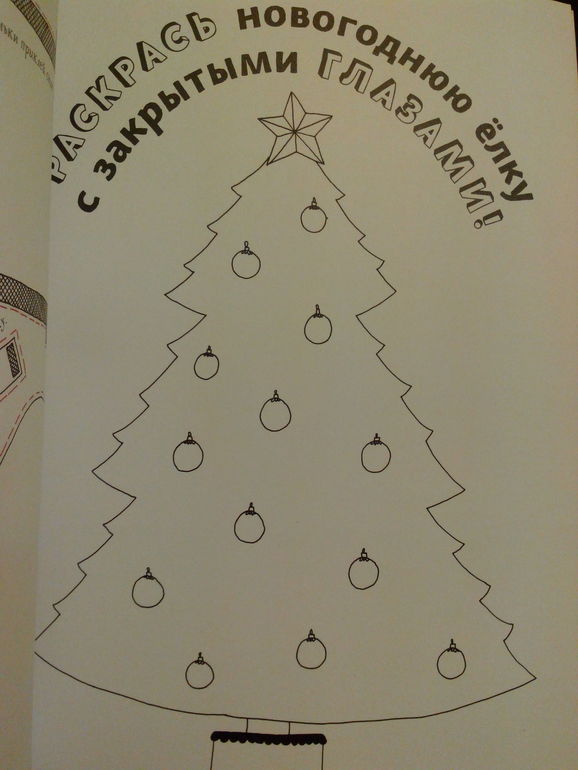 РАСКРАСЬ НОВОГОДНЮЮ ЁЛКУ
С ЗАКРЫТЫМИ ГЛАЗАМИ!